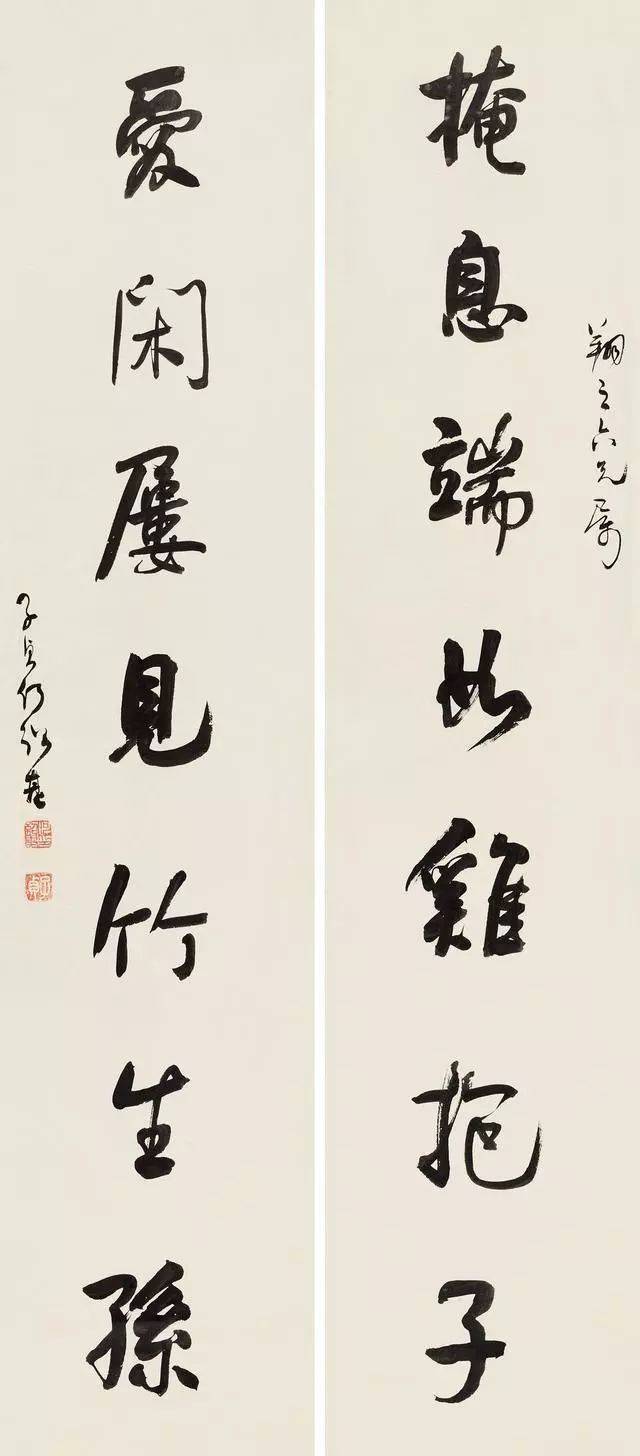 翔之六兄屬
掩息端如雞抱子
愛閑屢見竹生孫
子貞何紹基
子貞